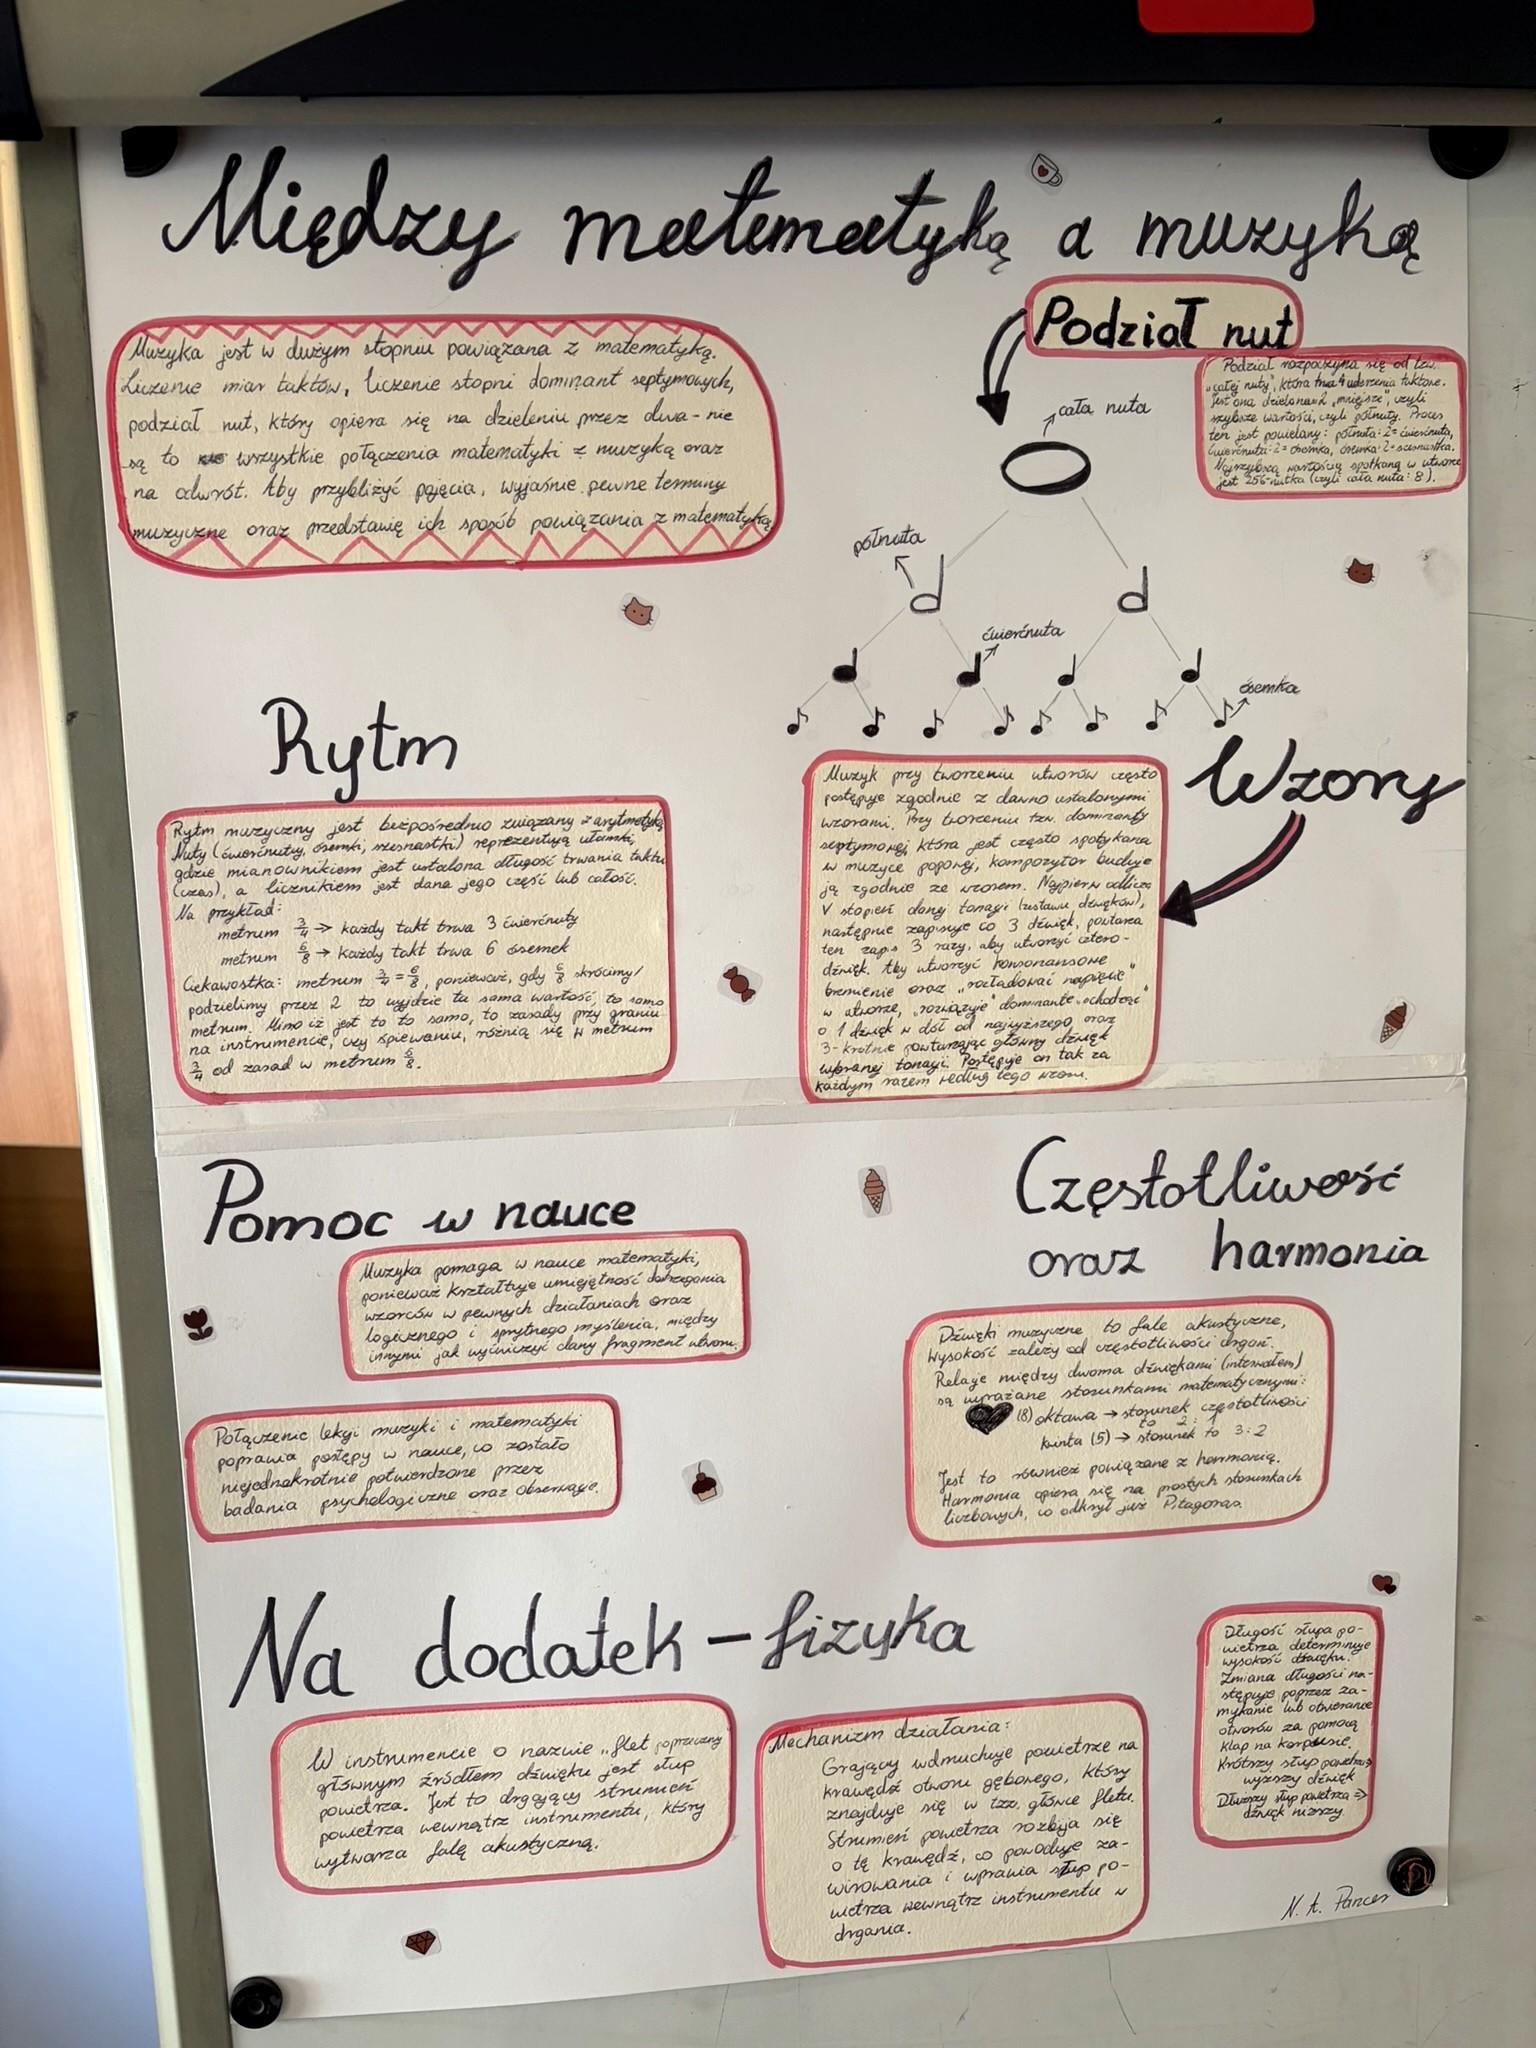 Między matematyką a muzyką
Muzyka jest w dużym stopniu powiązana z matematyką.
Liczenie miar taktów, liczenie stopni dominant septymowych,
podział nut, który opiera się na dzieleniu przez dwa - nie
są to wszystkie połączenia matematyki z muzyką oraz
na odwrót. Aby przybliżyć pojęcia, wyjaśnię pewne terminy
muzyczne oraz przedstawię ich sposób powiązania z matematyką
Podział nut
Podział rozpoczyna się od tzw.
„całej nuty", która ma 4 uderzenia taktowe.
Jest ona dzielona na 2 „mniejsze", czyli
szybsze wartości, czyli półnuty. Proces
ten jest powielany: półnuta:2=ćwierćnuta,
ćwierćnuta:2=ósemka, ósemka:2=szesnastka.
Najszybszą wartością spotkaną w utworze
jest 256-nutka (czyli cała nuta:8).
cała nuta
półnuta
ćwierćnuta
ósemka
Rytm
Rytm muzyczny jest bezpośrednio związany z arytmetyką
Nuty (ćwierćnuty, ósemki, szesnastki) reprezentują ułamki,
gdzie mianownikiem jest ustalona długość trwania taktu
(czas), a licznikiem jest dana jego część lub całość.
Na przykład:
metrum 3/4 → każdy takt trwa 3 ćwierćnuty
metrum 6/8 → każdy takt trwa 6 ósemek
Ciekawostka: metrum 3/4 = 6/8, ponieważ, gdy 6/8 skrócimy/
podzielimy przez 2 to wyjdzie ta sama wartość, to samo
metrum. Mimo iż jest to to samo, to zasady przy graniu
na instrumencie, czy śpiewaniu, różnią się w metrum
3/4 od zasad w metrum 6/8.
Wzory
Muzyk przy tworzeniu utworów często
postępuje zgodnie z dawno ustalonymi
wzorami. Przy tworzeniu tzw. dominanty
septymowej, która jest często spotykana
w muzyce popowej, kompozytor buduje
ją zgodnie ze wzorem. Najpierw odlicza
V stopień danej tonacji (zestawu dźwięków),
następnie zapisuje co 3 dźwięk, powtarza
ten zapis 3 razy, aby utworzyć cztero-
dźwięk. Aby utworzyć konsonansowe
brzmienie oraz „rozładować napięcie"
w utworze, „rozwiązuje" dominantę „schodząc"
o 1 dźwięk w dół od najwyższego oraz
3-krotnie powtarzając główny dźwięk
wybranej tonacji. Postępuje on tak za
każdym razem według tego wzoru.
Pomoc w nauce
Muzyka pomaga w nauce matematyki,
ponieważ kształtuje umiejętność dostrzegania
wzorców w pewnych działaniach oraz
logicznego i sprytnego myślenia, między
innymi jak wyćwiczyć dany fragment utworu.
Połączenie lekcji muzyki i matematyki
poprawia postępy w nauce, co zostało
niejednokrotnie potwierdzone przez
badania psychologiczne oraz obserwacje.
Częstotliwość
oraz harmonia
Dźwięki muzyczne to fale akustyczne,
Wysokość zależy od częstotliwości drgań.
Relacje między dwoma dźwiękami (interwałem)
są wyrażane stosunkami matematycznymi:
(8) oktawa → stosunek częstotliwości
to 2:1
kwinta (5) → stosunek to 3:2
Jest to również powiązane z harmonią.
Harmonia opiera się na prostych stosunkach
liczbowych, co odkrył już Pitagoras.
Na dodatek – fizyka
W instrumencie o nazwie „flet poprzeczny
głównym źródłem dźwięku jest słup
powietrza. Jest to drgający strumień
powietrza wewnątrz instrumentu, który
wytwarza falę akustyczną.
Mechanizm działania:
Grający wdmuchuje powietrze na
krawędź otworu gębowego, który
znajduje się w tzz. główce fletu.
Strumień powietrza rozbija się
o tę krawędź, co powoduje za-
wirowania i wprawia słup po-
wietrza wewnątrz instrumentu w
drgania.
Długość słupa po-
wietrza determinuje
wysokość dźwięku.
Zmiana długości na-
stępuje poprzez za-
mykanie lub otwieranie
otworów za pomocą
klap na korpusie.
Krótszy słup powietrza ⇒
wyższy dźwięk
Dłuższy słup powietrza ⇒
dźwięk niższy.
N. A.